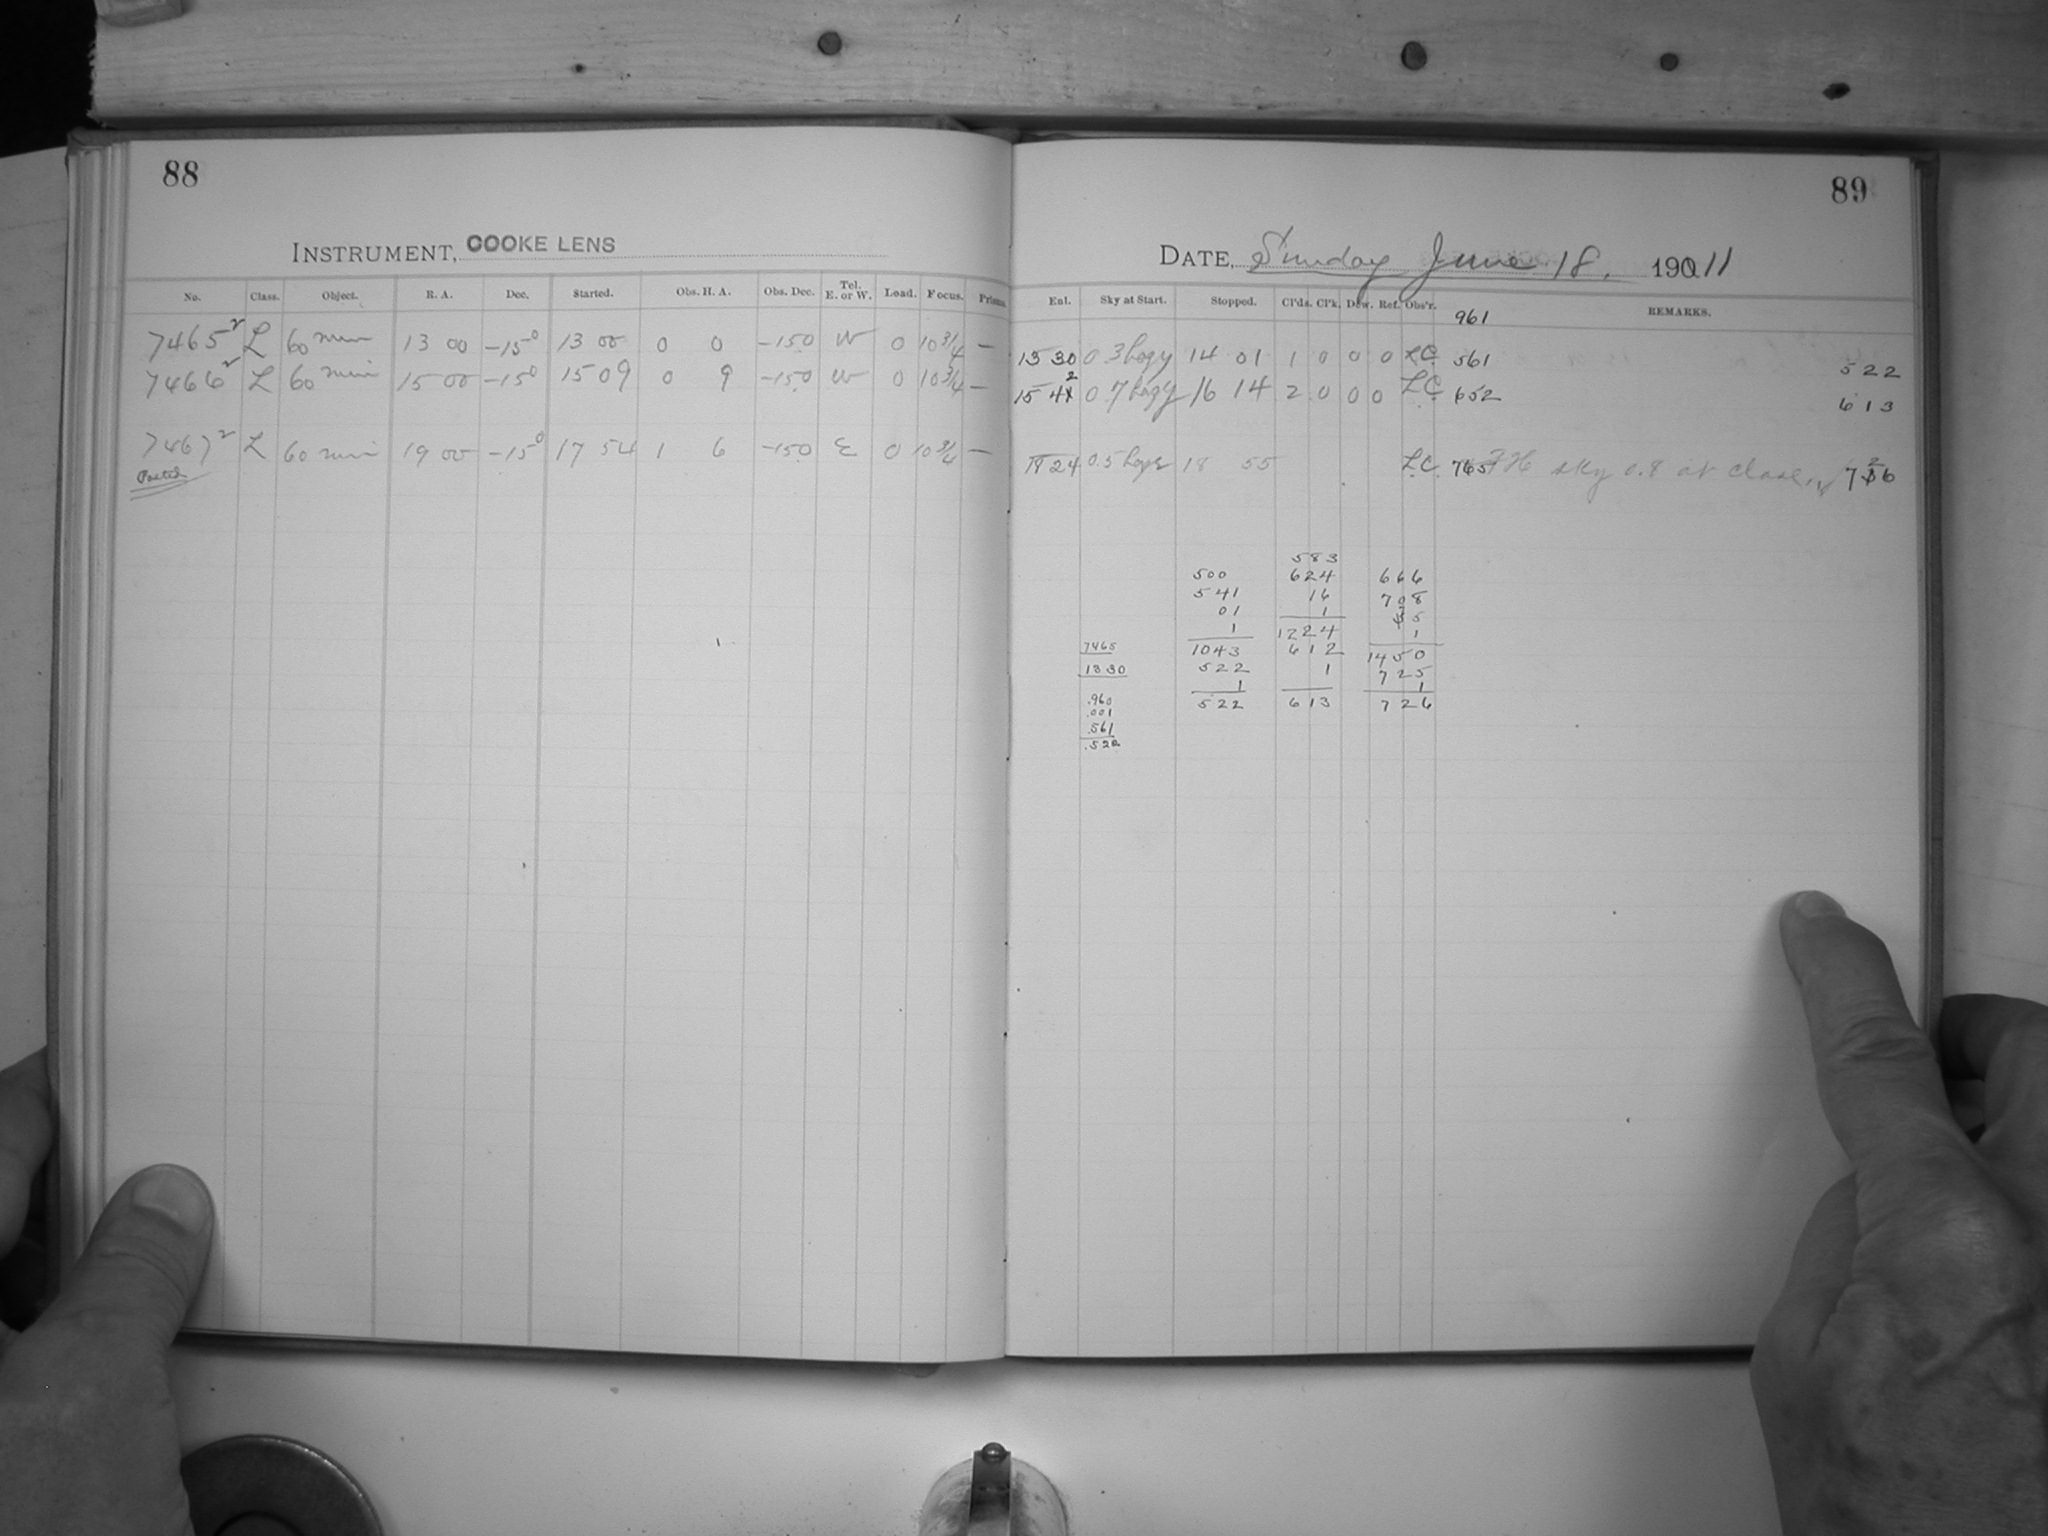 88
INSTRUMENT, COOKE LENS
No. Class. Object. R. A. Dec. Started. Obs. H. A. Obs. Dec. Tel. E. or W. Load. Focus. Prisms.
7465² L 60 min 13 00 -15⁰ 13 00 0 0 -150 W 0 10 3/4 —
7466² L 60 min 15 00 -15⁰ 15 09 0 9 -150 W 0 10 3/4 —
7467² L 60 min 19 00 -15⁰ 17 54 1 6 -150 E 0 10 3/4 —
89
DATE, Sunday June 18, 190 11
Ent. Sky at Start. Stopped. Cl'ds. Cl'k. Dew. Ref. Obs'r. REMARKS.
961
13 30 0.3 hazy 14 01 1 0 0 0 LC. 561 522
15 42 0.7 hazy 16 14 2 0 0 0 LC. 652 613
18 24 0.5 18 55 L.C. 765 sky 0.8 at close, 726
583
500 624 666
541 16 708
01 1 35
1 1224 1
7465 1043 612 1450
1330 522 1 725
1 1
.960 522 613 726
.001
.561
.522